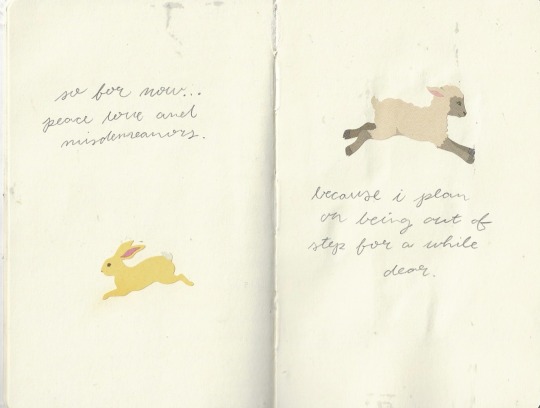 so for now...
peace love and
misdemeanors.
because i plan
on being out of
step for a while
dear.